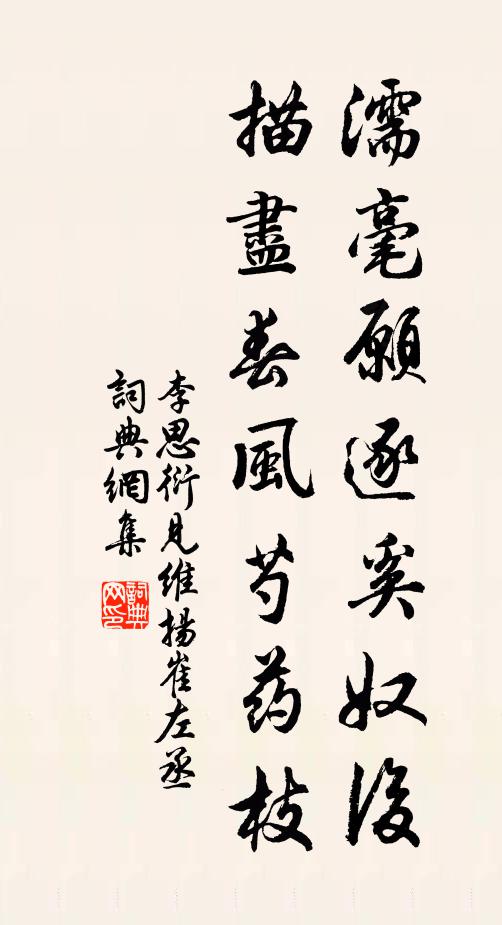 濡毫願逐奚奴後
描盡春風芍药枝
李思衍見維揚崔左丞
詞典網集
詞典网印